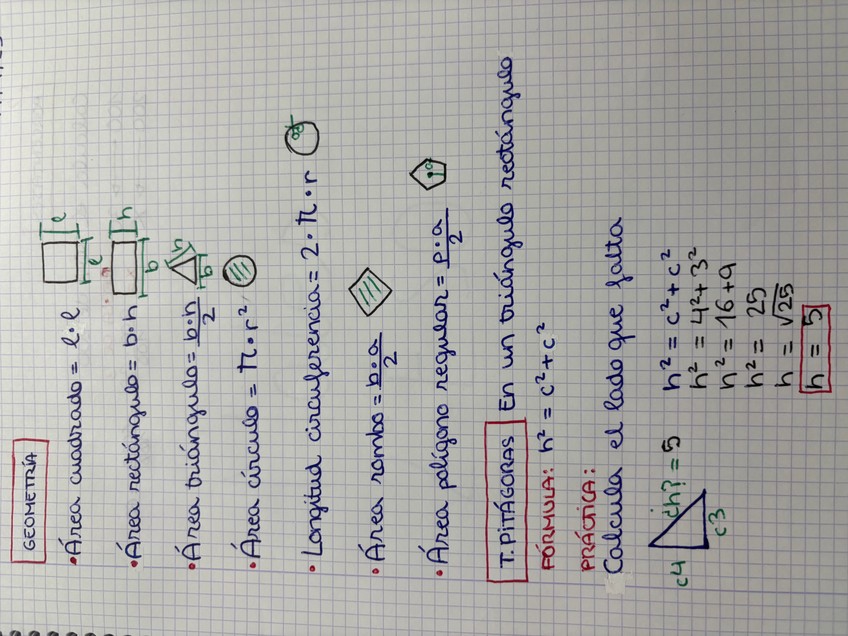 GEOMETRÍA
• Área cuadrado = l · l l l
• Área rectángulo = b · h b h
• Área triángulo = b · h / 2 b h
• Área círculo = π · r²
• Longitud circuferencia = 2 · π · r
• Área rombo = D · a / 2
• Área polígono regular = P · a / 2 a
T. PITÁGORAS En un triángulo rectángulo
FÓRMULA: h² = c² + c²
PRÁCTICA:
Calcula el lado que falta
c4 ¿h? = 5 c3
h² = c² + c²
h² = 4² + 3²
h² = 16 + 9
h² = 25
h = √25
h = 5